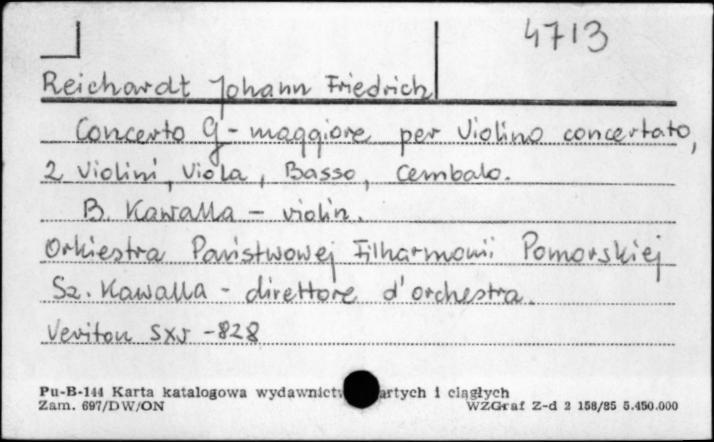 4713
Reichardt Johann Friedrich
Concerto G - maggiore per Violino concertato,
2 Violini, Viola, Basso, Cembalo.
B. Kawalla - violin.
Orkiestra Państwowej Filharmonii Pomorskiej
Sz. Kawalla - direttore d'orchestra.
Veriton SXV - 828
Pu-B-144 Karta katalogowa wydawnictw artych i ciągłych
Zam. 697/DW/ON WZGraf Z-d 2 158/85 5.450.000